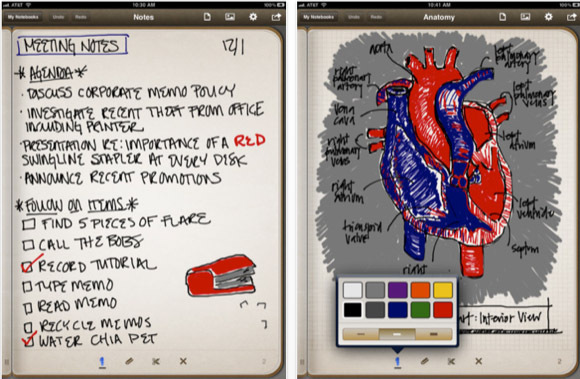 AT&T
10:30 AM
My Notebooks
Undo
Redo
Notes
MEETING NOTES
12/1
*AGENDA*
· DISCUSS CORPORATE MEMO POLICY
· INVESTIGATE RECENT THEFT FROM OFFICE
INCLUDING PRINTER
· PRESENTATION RE: IMPORTANCE OF A RED
SWINGLINE STAPLER AT EVERY DISK
· ANNOUNCE RECENT PROMOTIONS
*FOLLOW ON ITEMS*
FIND 5 PIECES OF FLARE
CALL THE BOBS
RECORD TUTORIAL
TYPE MEMO
READ MEMO
RECYCLE MEMOS
WATER CHIA PET
2
AT&T
10:41 AM
My Notebooks
Undo
Redo
Anatomy
aorta
left
pulmonary
artery
right
pulmonary
artery
left
pulmonary
veins
vena
cava
right
pulmonary
veins
left
atrium
right
atrium
left
ventricle
valve
septum
right
art: Interior View
2